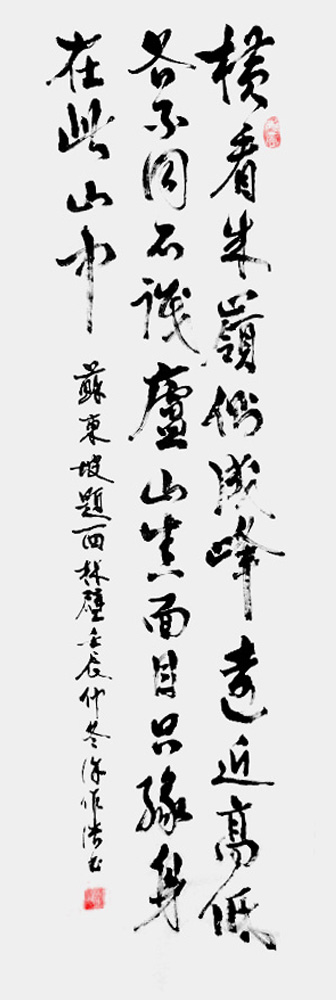 橫看成嶺側成峰遠近高低
各不同不識廬山真面目只緣身
在此山中
蘇東坡題西林壁壬辰仲冬